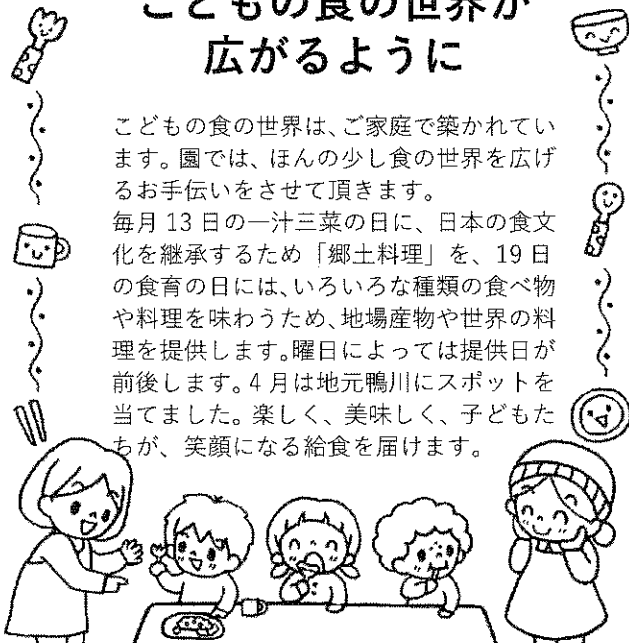 こどもの食の世界が
広がるように
こどもの食の世界は、ご家庭で築かれてい
ます。園では、ほんの少し食の世界を広げ
るお手伝いをさせて頂きます。
毎月 13 日の一汁三菜の日に、日本の食文
化を継承するため「郷土料理」を、19 日
の食育の日には、いろいろな種類の食べ物
や料理を味わうため、地場産物や世界の料
理を提供します。曜日によっては提供日が
前後します。4 月は地元鴨川にスポットを
当てました。楽しく、美味しく、子どもた
ちが、笑顔になる給食を届けます。